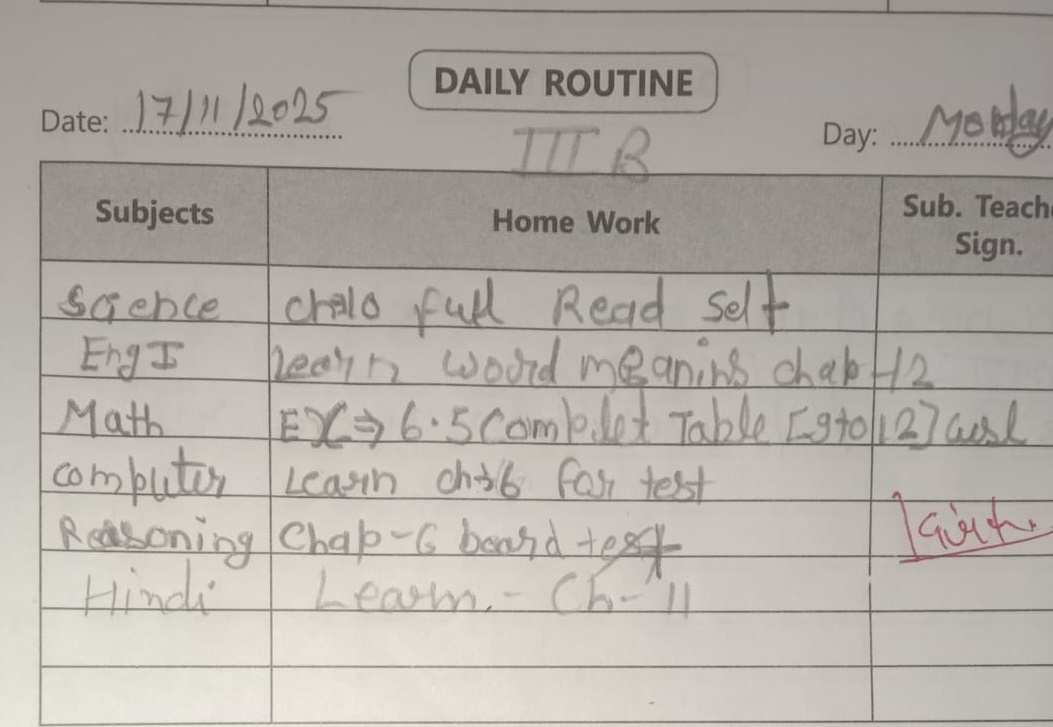 DAILY ROUTINE
Date: 17/11/2025
Day: Monday
III B
Subjects Home Work Sub. Teach Sign.
Science ch10 full Read Self
Eng I Learn word meanins chap-12
Math EX⇒6.5 Complet Table [9to12]
computer Learn ch→6 for test
Reasoning Chap-6 board test
Hindi Learn.- Ch-11